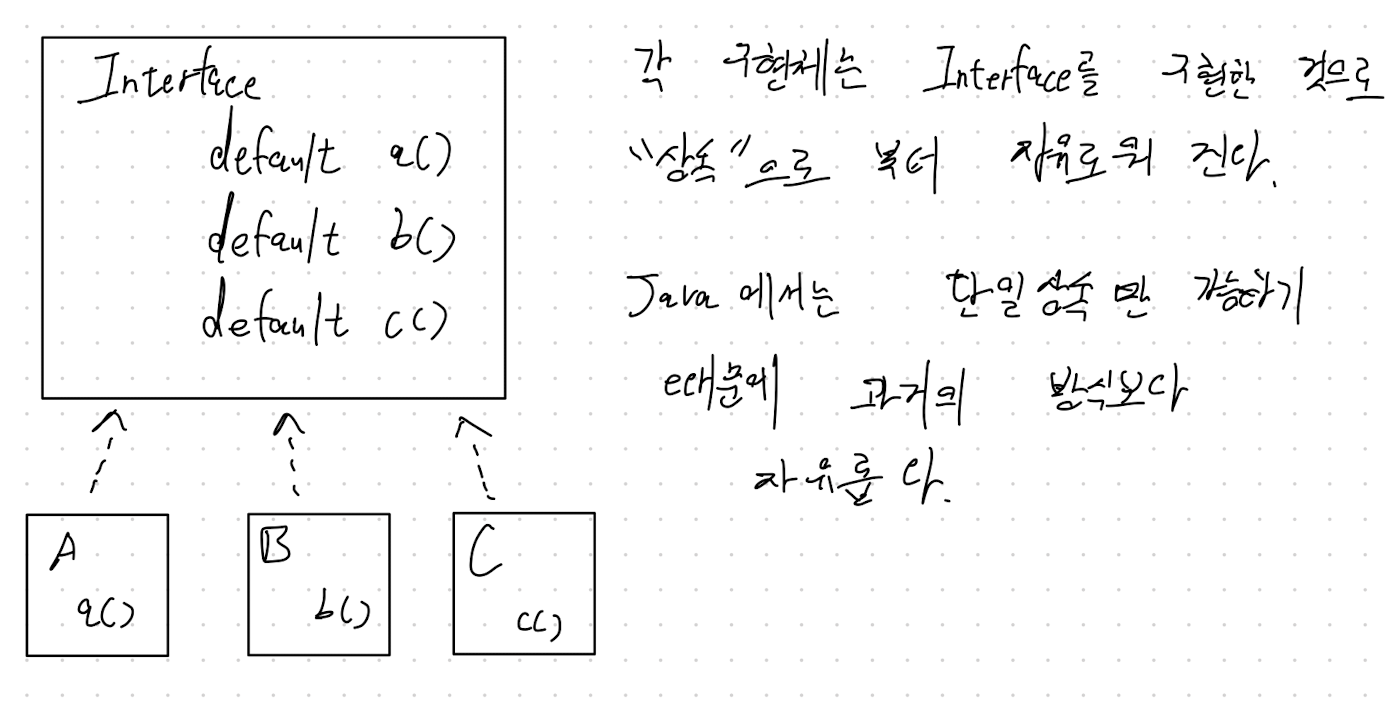 Interface
default a()
default b()
default c()
A
a()
B
b()
C
c()
각 구현체는 Interface를 구현한 것으로
"상속"으로 부터 자유로워 진다.
Java 에서는 단일상속만 가능하기
때문에 과거의 방식보다
자유롭다.